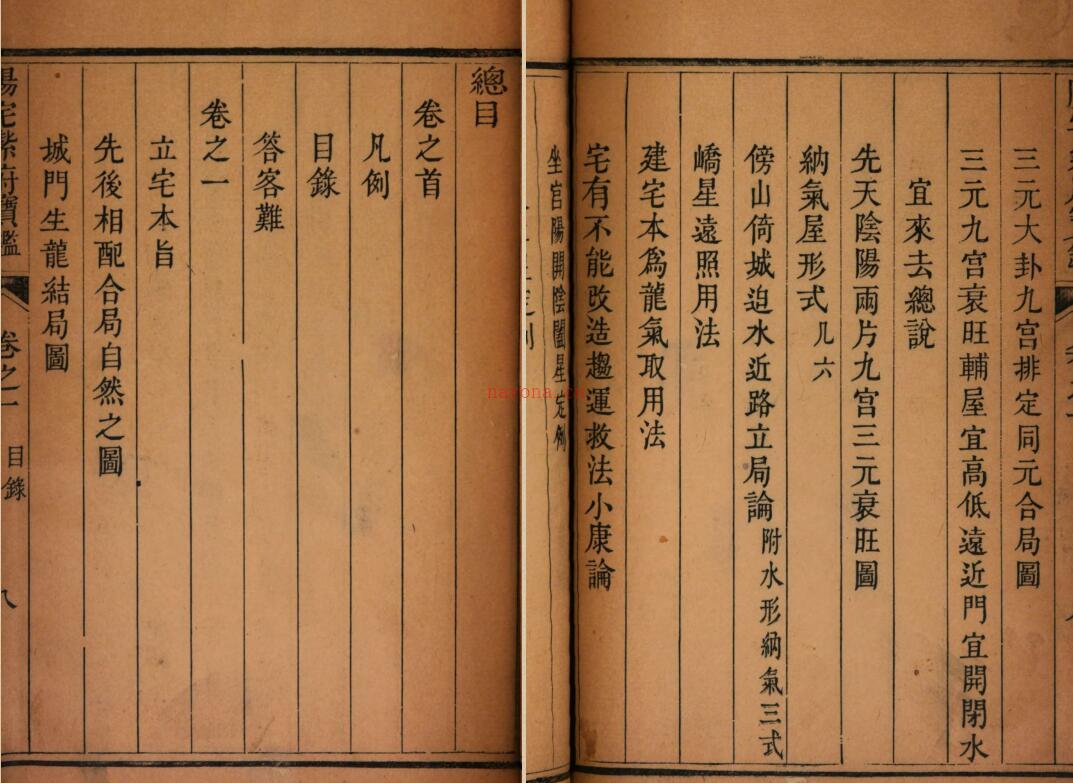 總目
卷之首
凡例
目錄
答客難
卷之一
立宅本旨
先後相配合局自然之圖
城門生龍結局圖
陽宅紫府寶鑑
卷之一
目錄
八
三元大卦九宮排定同元合局圖
三元九宮衰旺輔屋宜高低遠近門宜開閉水
宜來去總說
先天陰陽兩片九宮三元衰旺圖
納氣屋形式 几六
傍山倚城迫水近路立局論 附水形納氣三式
嶠星遠照用法
建宅本為龍氣取用法
宅有不能改造趨運救法小康論
坐宮陽開陰闔星定例